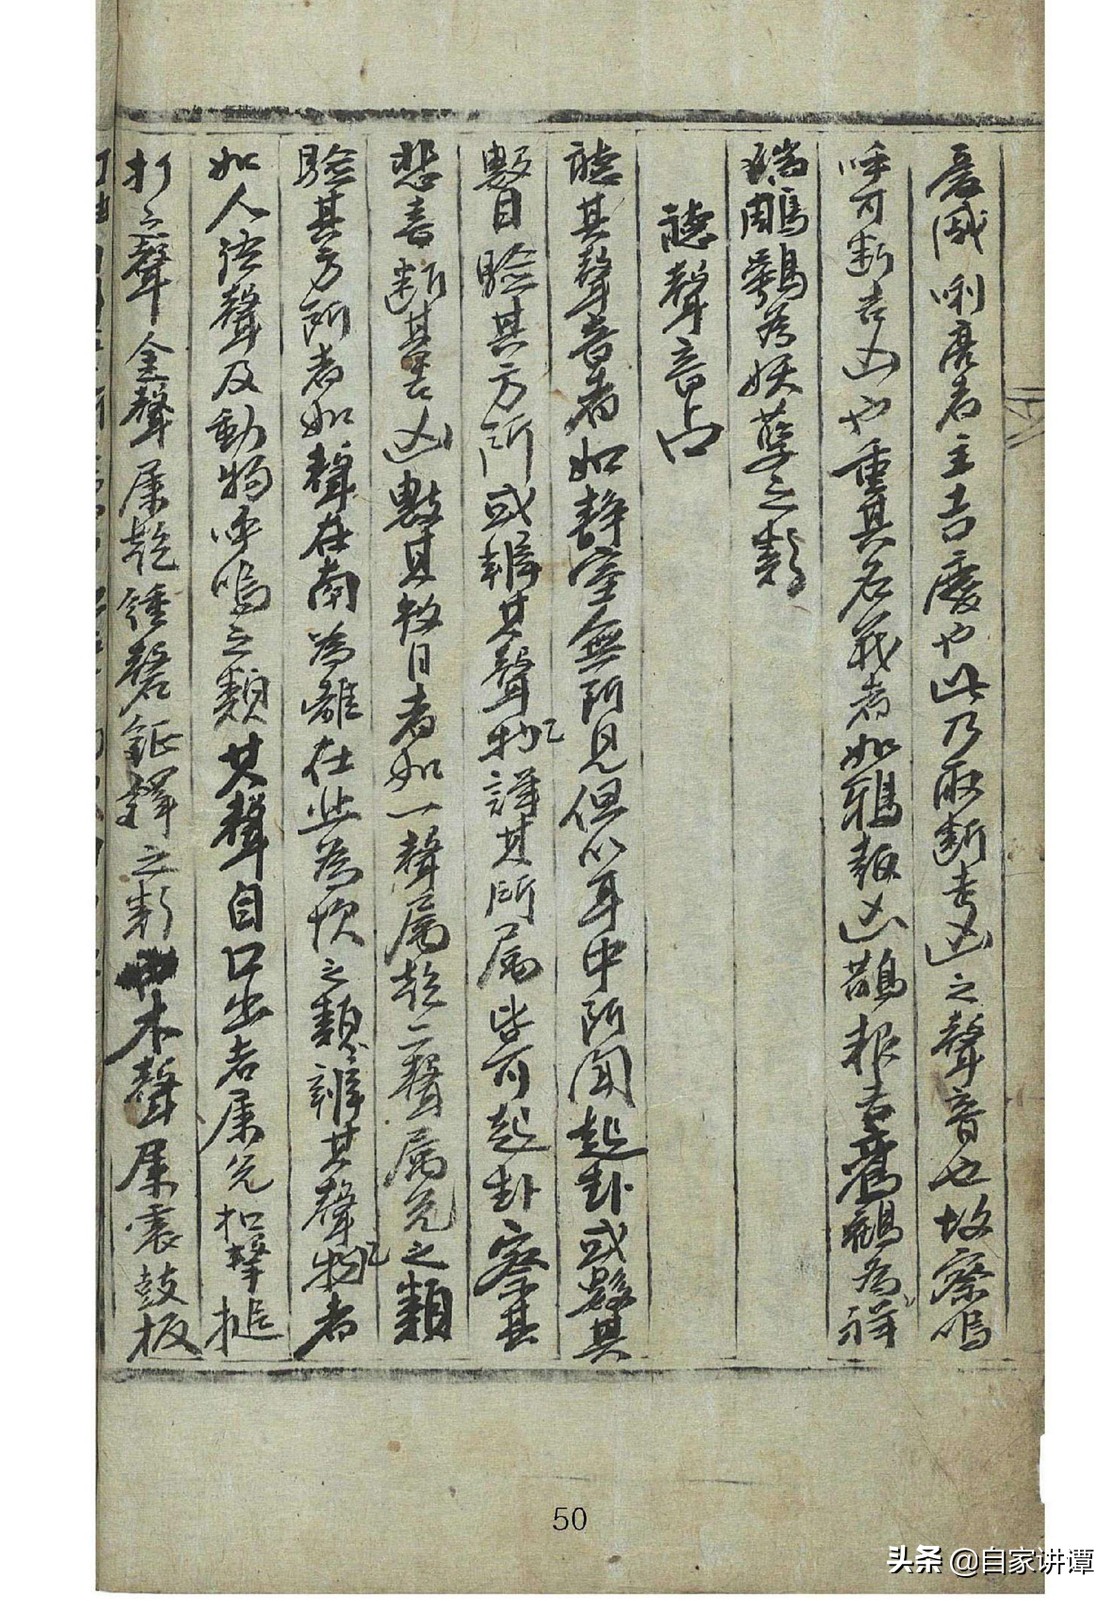 憂戚唎亮者主吉慶也此乃取断吉凶之聲音也故察鳴
呼可断吉凶也重其名義者如鴉報凶鵲報吉鸞鶴為祥
瑞鵰鶚為妖孽之類
聽聲音占
聽其聲音者如静室無所見但以耳中所聞起卦或數其
數目驗其方所或辨其聲物詳其所属皆可起卦察其
悲喜断其吉凶數其数目者如一聲属乾二聲属兌之類
驗其方所者如聲在南為離在北為坎之類辨其聲物者
如人语聲及動物呼鳴之類其聲自口出者属兌扣擊搥
打之聲金聲属乾鍾磬鉦鐸之類木聲属震鼓板
50
头条 @自家讲谭